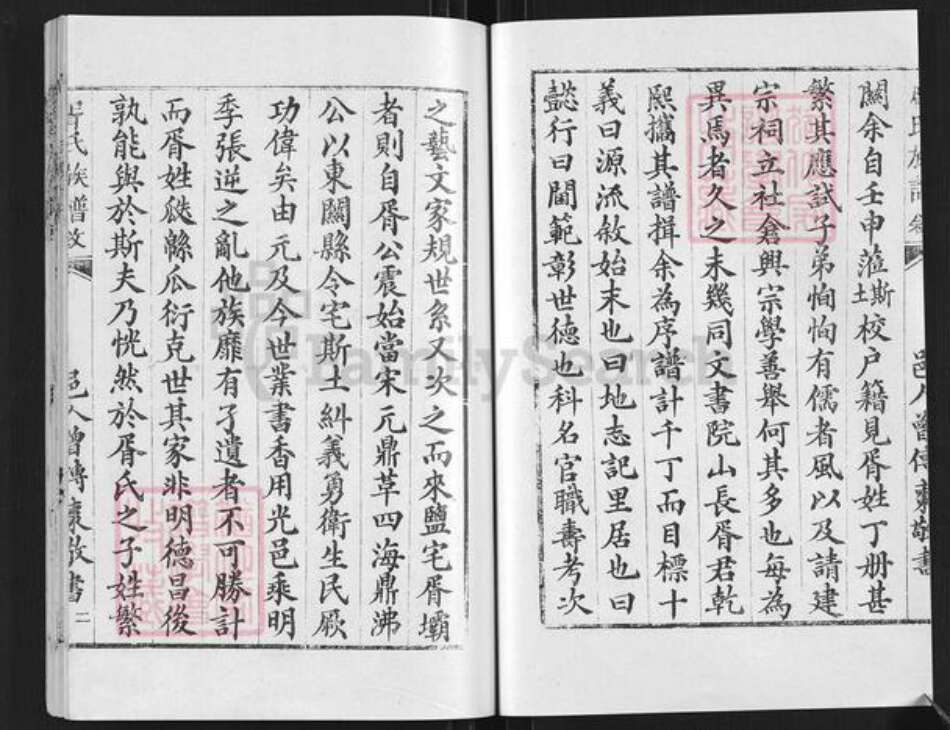 關余自壬申蒞斯土校户籍見胥姓丁册甚
繁其應試子弟恂恂有儒者風以及請建
宗祠立社倉興宗學善舉何其多也每為
異焉者久之未幾同文書院山長胥君乾
熙攜其譜揖余為序譜計千丁而目標十
義曰源流敘始末也曰地志記里居也曰
懿行曰閫範彰世德也科名官職壽考次
之藝文家規世系又次之而來鹽宅胥壩
者則自胥公震始當宋元鼎革四海鼎沸
公以東關縣令宅斯土糾義勇衛生民厥
功偉矣由元及今世業書香用光邑乘明
季張逆之亂他族靡有孑遺者不可勝計
而胥姓瓞緜瓜衍克世其家非明德昌後
孰能與於斯夫乃恍然於胥氏之子姓繁
胥氏族譜敘
邑人曾傳
敬書
二
FamilySearch